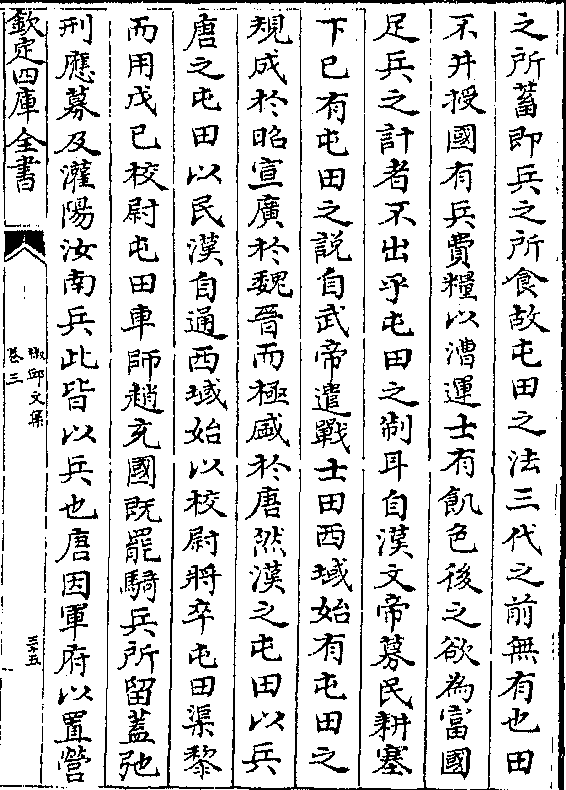 之所蓄即兵之所食故屯田之法三代之前無有也田
不井授國有兵費糧以漕運士有飢色後之欲為富國
足兵之計者不出乎屯田之制耳自漢文帝募民耕塞
下已有屯田之説自武帝遣戰士田西域始有屯田之
規成於昭宣廣於魏晉而極盛於唐然漢之屯田以兵
唐之屯田以民漢自通西域始以校尉將卒屯田渠黎
而用戊已校尉屯田車師趙充國既罷騎兵所留蓋弛
刑應募及灌陽汝南兵此皆以兵也唐因軍府以置營
欽定四庫全書
椒邱文集
卷三
三十五